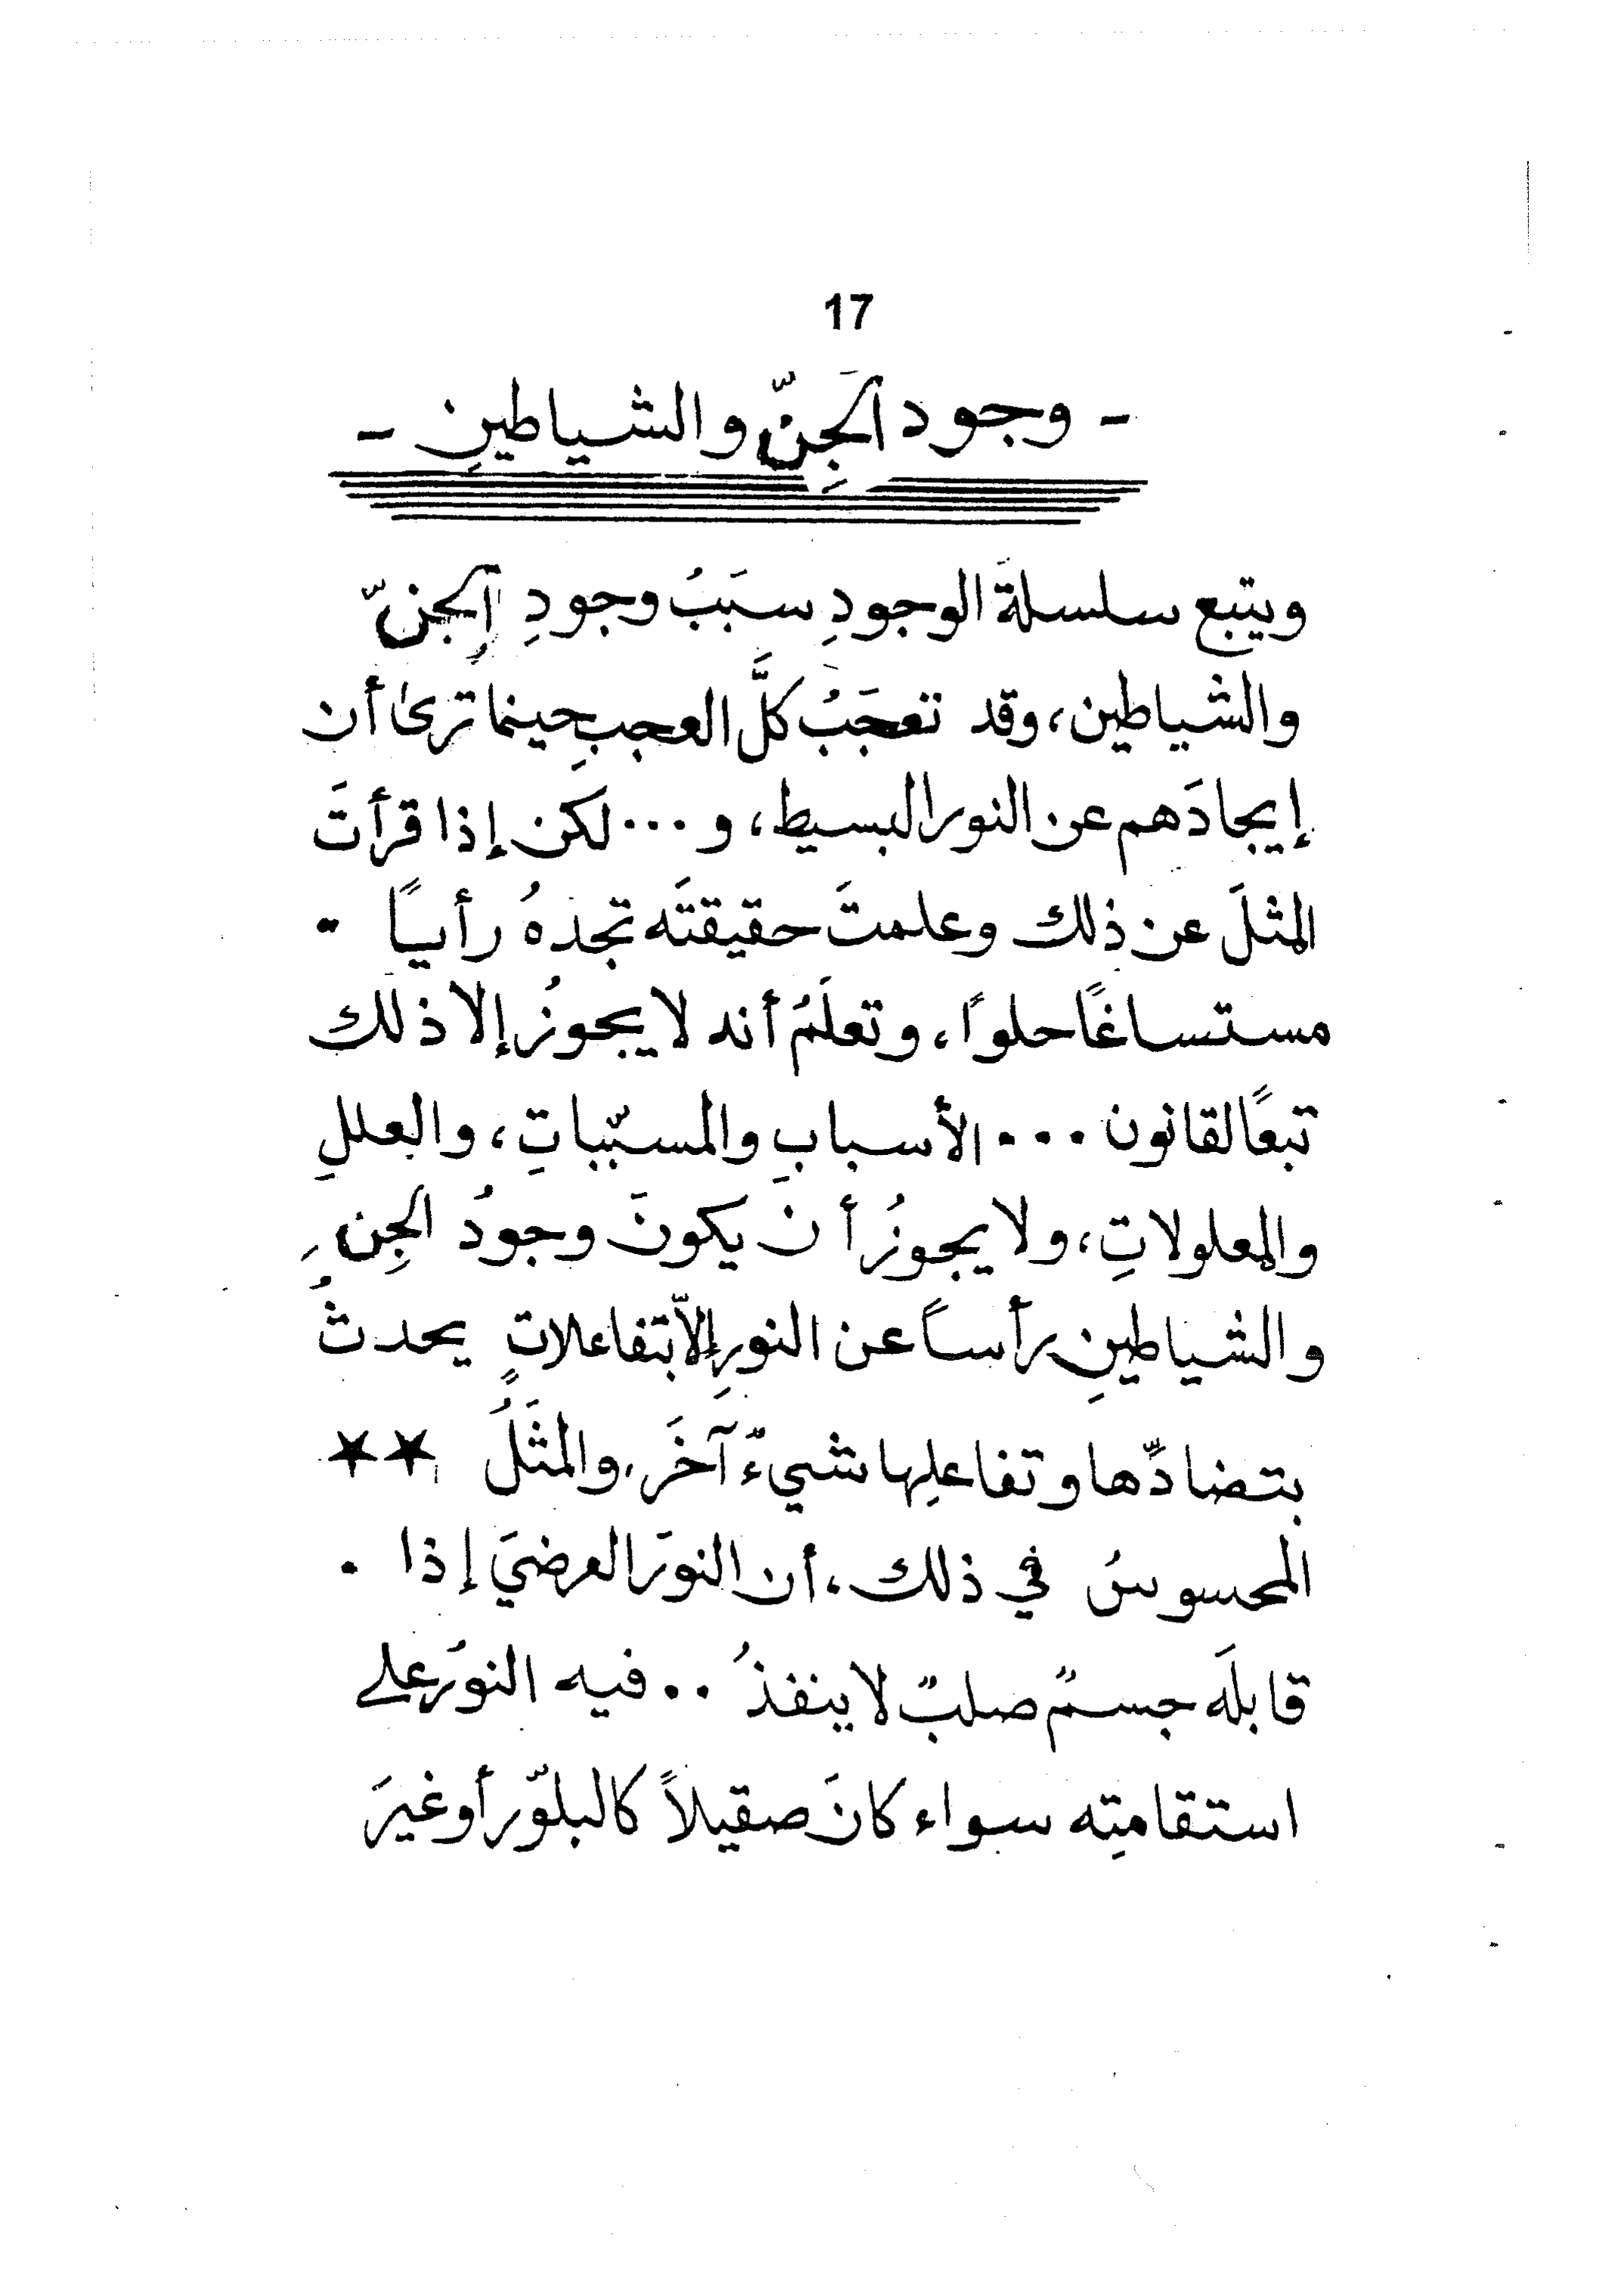 17
- وجود الجِنّ والشياطينِ -
ويتبع سلسلةَ الوجودِ سبَبُ وجودِ الجنّ
والشياطين، وقد تعجَبُ كلَّ العجبِ حينما ترى أن
إيجادَهم عن النور البسيط، و... لكن إذا قرأتَ
المثلَ عن ذلك وعلمتَ حقيقتَه تجدهُ رأيـًا .
مستساغًا حلوًا، وتعلَمُ أنه لا يجوزُ إلا ذلك
تبعًا لقانون ... الأسبابِ والمسبّباتِ، والعللِ
والمعلولاتِ، ولا يجوزُ أن يكونَ وجودُ الجِنِ
والشياطينِ رأساً عن النورِ إلاّ بتفاعلاتٍ يحدثُ
بتضادِّها وتفاعلِها شيءٌ آخَر، والمثَلُ ★★
المحسوسُ في ذلك، أن النورَ العرضيَ إذا .
قابلَه جسمٌ صلبٌ لا ينفذُ .. فيه النورُ على
استقامتِه سواء كانَ صقيلاً كالبلوّر أو غيرَ